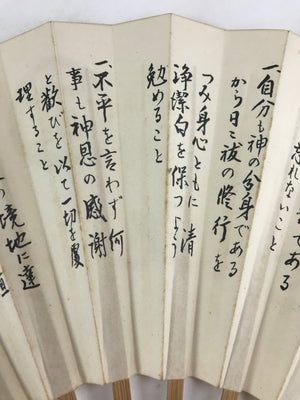 忘れないこと
一、自分も神の分身である
から日々祓の修行を
つみ身心ともに清
浄潔白を保つよう
勉めること
一、不平を言わず何
事も神恩の感謝
と歓びを以て一切を處
理すること
境地に達